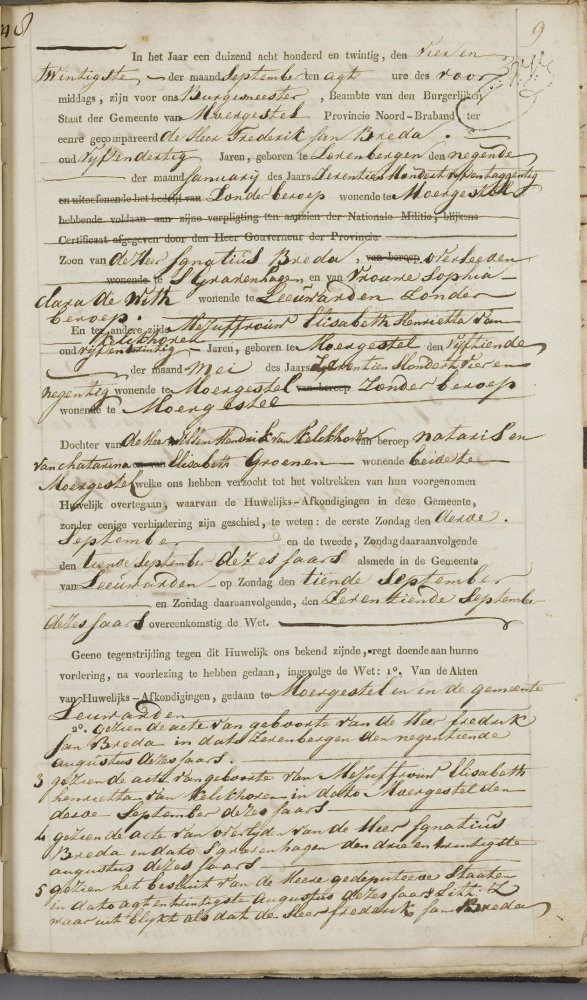 9
In het Jaar een duizend acht honderd en twintig, den vier en
twintigste der maand September ten agt ure des voor
middags, zijn voor ons Burgemeester, Beambte van den Burgerlijken
Staat der Gemeente van Moergestel Provincie Noord-Braband ter
eenre gecompareerd de Heer Frederik Jan Breda.
oud vijfendertig Jaren, geboren te Zevenbergen den negende
der maand Januarij des Jaars Zeventien Hondert vijf en taggentig
en uitoefenende het bedrijf van Zonder beroep wonende te Moergestel
hebbende voldaan aan zijne verpligting ten aanzien der Nationale Militie, blijkens
Certificaat afgegeven door den Heer Gouverneur der Provincie
Zoon van de Heer Ignatius Breda, van beroep overleeden
wonende te S Gravenhage, en van Vrouwe Sophia
Clara de With wonende te Leeuwarden Zonder
beroep.
En ter andere zijde Mejuffrouw Elisabeth Henrietta van
Kelckhoven
oud vijfentwintig Jaren, geboren te Moergestel den Vijftiende
der maand Mei des Jaars Zeventien Hondert Vier en
negentig wonende te Moergestel van beroep Zonder beroep
wonende te Moergestel
Dochter van de Heer Willem Hendrik van Kelckhoven van beroep notaris en
van Chatarina en van Elisabeth Groenen wonende beide te
Moergestel welke ons hebben verzocht tot het voltrekken van hun voorgenomen
Huwelijk overtegaan, waarvan de Huwelijks-Afkondigingen in deze Gemeente,
zonder eenige verhindering zijn geschied, te weten: de eerste Zondag den derde.
September en de tweede, Zondag daaraanvolgende
den tiende September dezes Jaars alsmede in de Gemeente
van Leeuwarden op Zondag den tiende September
en Zondag daaraanvolgende, den Zeventiende September
dezes Jaars overeenkomstig de Wet.
Geene tegenstrijding tegen dit Huwelijk ons bekend zijnde, regt doende aan hunne
vordering, na voorlezing te hebben gedaan, ingevolge de Wet: 1º. Van de Akten
van Huwelijks-Afkondigingen, gedaan te Moergestel en in de gemeente
Leuwarden
2º. gezien de acte van geboorte van de Heer fredrik
Jan Breda in dato Zevenbergen den negentiende
augustus dezes Jaars
3 gezien de acte van geboorte van Mejuffrouw Elisabeth
henrietta van Kelckhoven in dato Moergestel den
derde September dezes Jaars
4 gezien de acte van overlyde van de Heer Ignatius
Breda in dato S'gravenhagen den drie en twintigste
augustus dezes Jaars
5 gezien het besluit van de Heere gedeputeerde Staaten
in dato agt en twintigste augustus dezes Jaars Litt: Z
waar uit blykt als dat de Heer fredrik Jan Breda